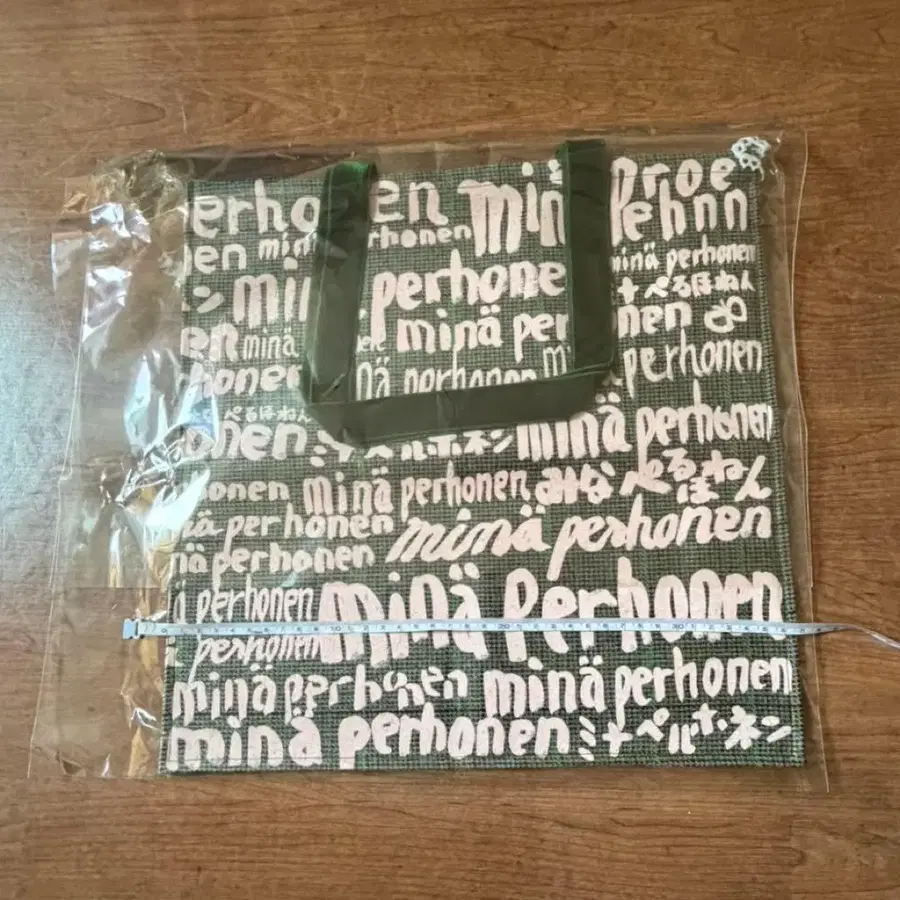 erho en minä Proe
en minä rhonen Pehnn
ン min perhone minä perhonen
ナ ぺるほねん
en minä minä per nen
honen nä perhonen perhonen
ぺるほねん
onen ミナ ペルホネン minä perhonen
honen minä perhonen みな ぺるほねん
nä perhonen minä perhonen
nä perhonen
perhonen minä perhonen
perhonen
minä perhonen minä perhonen
minä perhonen ミナ ペルホネン